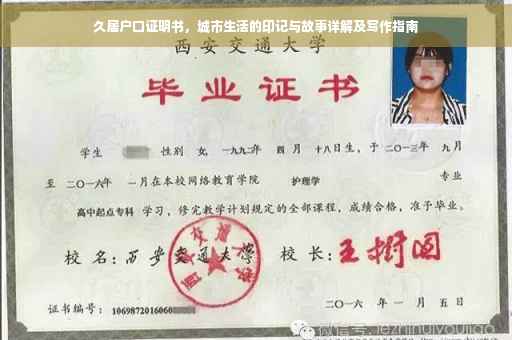 久居户口证明书，城市生活的印记与故事详解及写作指南
西安交通大学
毕业证书
学生 性别 女, 一九九二年 四 月 十八日生, 于 二〇一三年 九月
至 二〇一六年 一月在本校网络教育学院 护理学 专业
高中起点专科 学习, 修完教学计划规定的全部课程, 成绩合格, 准予毕业。
校 名: 西安交通大学 校 长: 王树国
西安交通大学
证书编号: 1069872016060
二〇一六 年 一 月 五 日
微信号: jezhinuiyoujiao